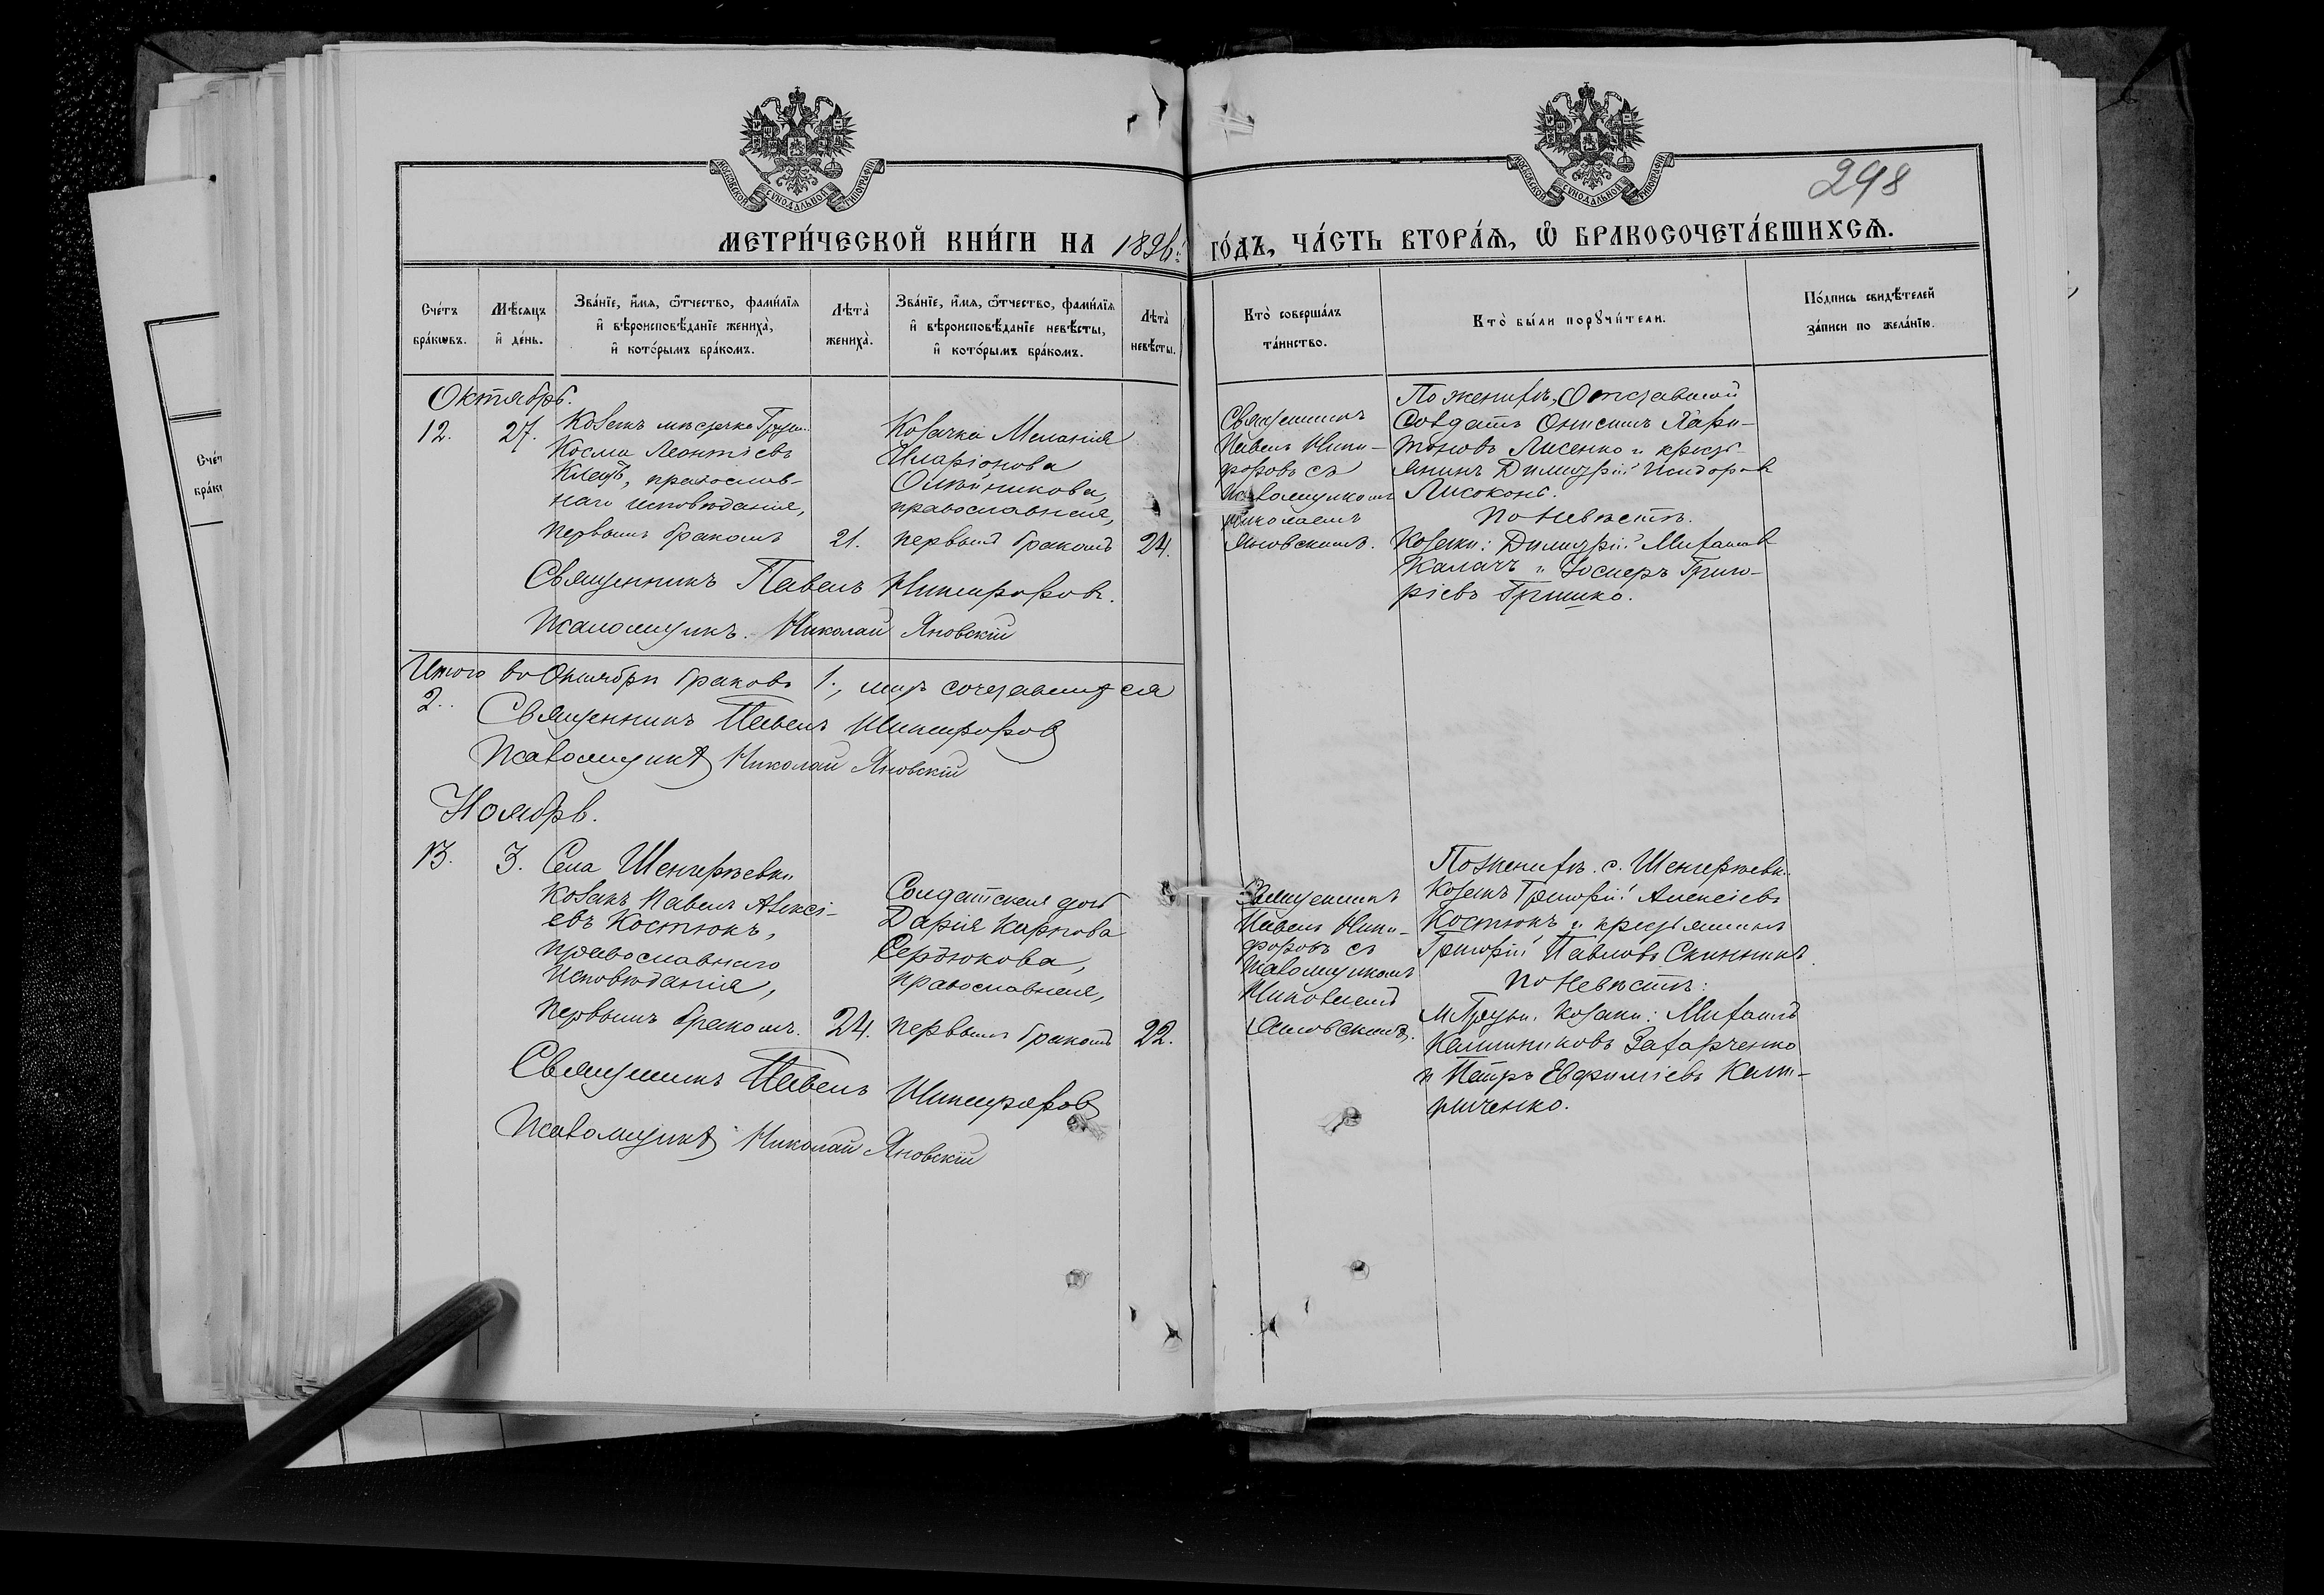 298
МЕТРИ́ЧЕСКОЙ КНИ́ГИ НА 1896: ГО́ДЪ, ЧА́СТЬ ВТОРА́Ѧ, Ѽ БРАКОСОЧЕТА́ВШИХСѦ.
Сче́тъ бра́кѡвъ.
Мѣ́сяцъ и́ де́нь.
Зва́нїе, и́мѧ, ѻ́тчество, фами́лїѧ и́ вѣроисповѣ́данїе жениха̀, и́ кото́рымъ бра́комъ.
Лѣта̀ жениха̀.
Зва́нїе, и́мѧ, ѻ́тчество, фами́лїѧ и́ вѣроисповѣ́данїе невѣ́сты, и́ кото́рымъ бра́комъ.
Лѣта̀ невѣ́сты.
Кто̀ соверша́лъ та́инство.
Кто̀ бы́ли порꙋчи́тели.
По́дпись свидѣ́телей за́писи по жела́нїю.
Октябрь.
12.
27.
Козакъ мѣстечка Груни
Косма Леонтіевъ
православ-
наго исповѣданія,
первымъ бракомъ
21.
Козачка Меланія
Иларіонова
Олѣйникова,
православная,
первымъ бракомъ
24.
Священникъ
Павелъ Ники-
форовъ съ
псаломщикомъ
Николаемъ
Яновскимъ.
По женихѣ, Отставной
Солдатъ Онисимъ Хари-
тоновъ Лисенко и крест-
янинъ Димитрій Исидоровъ
Лисоконь.
По невѣстѣ.
Козаки: Димитрій Михаиловъ
Калачъ и Іосифъ Григо-
ріевъ Гришко.
Священникъ Павелъ Никифоровъ.
Псаломщикъ Николай Яновскій
Итого въ Октябрѣ браковъ 1., лицъ сочетавшихся
2.
Священникъ Павелъ Никифоровъ
Псаломщикъ Николай Яновскій
Ноябрь.
13.
3.
Села Шенгерѣевки
Козакъ Павелъ Алексі-
евъ Костюкъ,
православнаго
исповѣданія,
первымъ бракомъ.
24.
Солдатская дочь
Дарія Карпова
Сердюкова,
православная,
первымъ бракомъ
22.
Священникъ
Павелъ Ники-
форовъ съ
псаломщикомъ
Николаемъ
Яновскимъ.
По женихѣ. с. Шенгерѣевки
Козакъ Григорій Алексіевъ
Костюкъ и крестьянинъ
Григорій Павловъ Скинникъ.
По невѣстѣ:
м. Груни. Козаки: Михаилъ
Калинниковъ Захарченко
и Петръ Евфиміевъ Кали-
ниченко.
Священникъ Павелъ Никифоровъ
Псаломщикъ Николай Яновскій